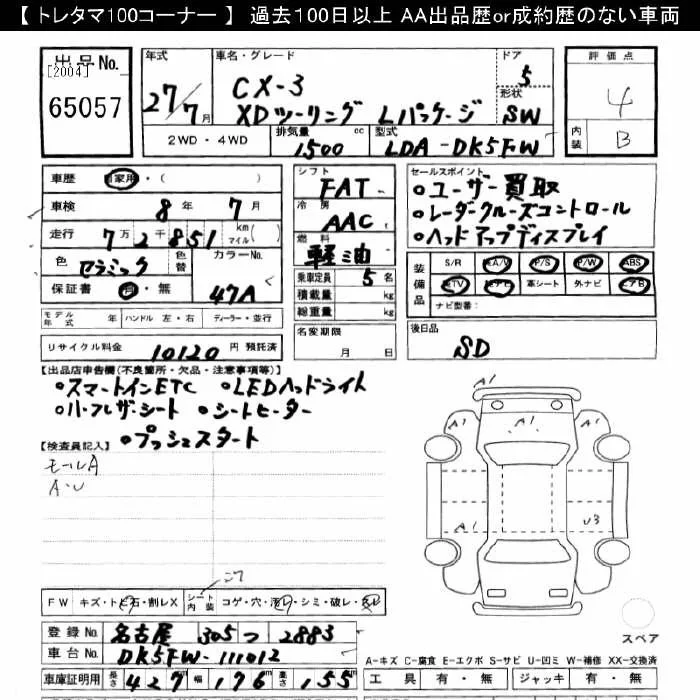 【 トレタマ100コーナー 】 過去100日以上 AA出品歴or成約歴のない車両
出品No.
[2004]
65057
年式
27/7月
車名・グレード
CX-3
XDツーリング Lパッケージ
ドア
5
形状
SW
評価点
4
内装
B
2WD ・ 4WD
排気量
1500 cc
型式
LDA-DK5FW
車歴 自家用・( )
車検 8年 7月
走行 7万2千851 km マイル( )
色 セラミック 色替 カラーNo. 47A
保証書 有・無
シフト
FAT
冷房
AAC
燃料
軽油
乗車定員 5 名
積載量 kg
総重量 kg
名変期限
月 日
セールスポイント
・ユーザー買取
・レーダークルーズコントロール
・ヘッドアップディスプレイ
装備品
S/R A/W P/S P/W ABS
TV ナビ 革シート 外ナビ エアB
ナビ型番:
後日品
SD
モデル年式 年 ハンドル 左・右 ディーラー・並行
リサイクル料金 10120 円 預託済
【出品店申告欄(不良箇所・欠品・注意事項等)】
・スマートインETC ・LEDヘッドライト
・ハーフレザーシート ・シートヒーター
・プッシュスタート
【検査員記入】
モールA
A・U
A1
A1 A1 A1
A1 U3
スペア
FW キズ・トビ石・割レX シート内装 コゲ・穴・汚レ・シミ・破レ・スレ
登録No. 名古屋 305 つ 2883
車台No. DK5FW-111012
車庫証明用 長さ 427 幅 176 高さ 155
A-キズ C-腐食 E-エクボ S-サビ U-凹ミ W-補修 XX-交換済
工具 有・無 ジャッキ 有・無